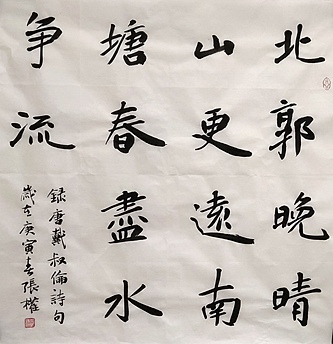 北郭晚晴
山更遠南
塘春盡水
争流
録唐戴叔倫詩句
歲在庚寅春張權